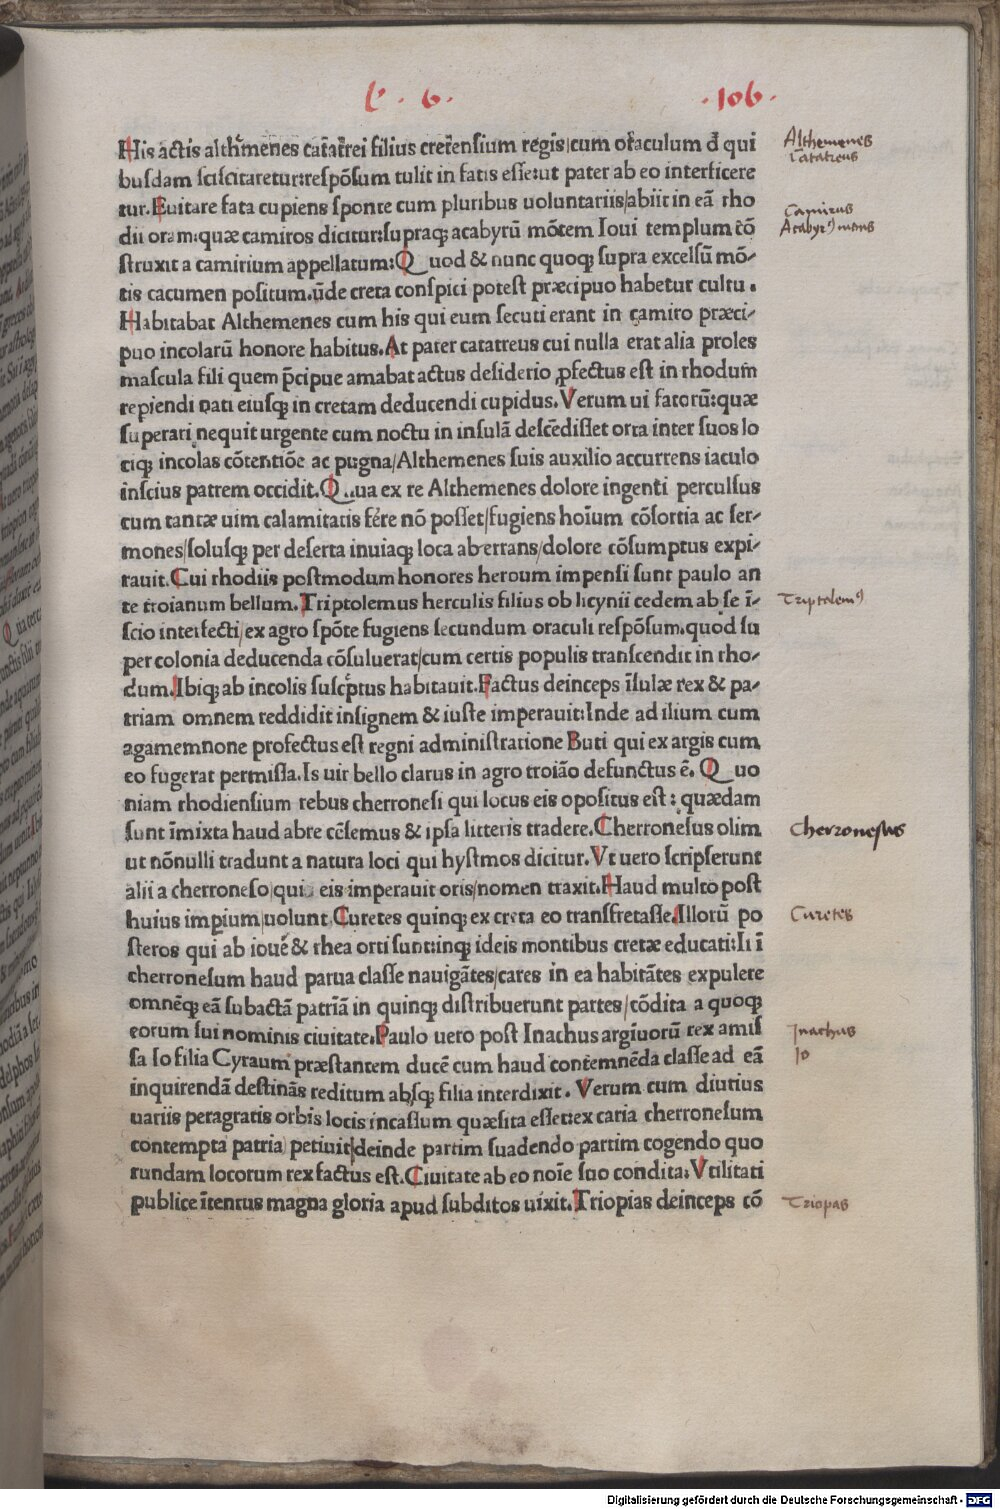 L. 6. .106.
His actis althemenes catatrei filius cretensium regis/cum oraculum đ qui
busdam sciscitaretur:respōsum tulit in fatis esse:ut pater ab eo interficere
tur.Euitare fata cupiens sponte cum pluribus uoluntariis/abiit in eā rho
dii oram:quæ camiros dicitur:supraqꝫ acabyrū mōtem Ioui templum cō
struxit a camirium appellatum:Quod & nunc quoqꝫ supra excelsū mō-
tis cacumen positum.ūde creta conspici potest præcipuo habetur cultu.
Habitabat Althemenes cum his qui eum secuti erant in camiro præci-
puo incolarū honore habitus.At pater catatreus cui nulla erat alia proles
mascula fili quem p̄cipue amabat actus desiderio ꝓfectus est in rhodum
repiendi nati eiusqꝫ in cretam deducendi cupidus.Verum ui fatorū:quæ
superari nequit urgente cum noctu in insulā descēdisset orta inter suos lo
ciqꝫ incolas cōtentiōe ac pugna/Althemenes suis auxilio accurrens iaculo
inscius patrem occidit.Qua ex re Althemenes dolore ingenti perculsus
cum tantæ uim calamitatis ferre nō posset/fugiens hoīum cōsortia ac ser-
mones/solusqꝫ per deserta inuiaqꝫ loca aberrans/dolore cōsumptus expi-
rauit.Cui rhodiis postmodum honores heroum impensi sunt paulo an
te troianum bellum.Triptolemus herculis filius ob licynii cedem ab se ī-
scio interfecti/ex agro spōte fugiens secundum oraculi respōsum.quod su
per colonia deducenda cōsuluerat/cum certis populis transcendit in rho-
dum.Ibiqꝫ ab incolis susceptus habitauit.Factus deinceps īsulæ rex & pa-
triam omnem reddidit insignem & iuste imperauit:Inde ad ilium cum
agamemnone profectus est regni administratione Buti qui ex argis cum
eo fugerat permissa.Is uir bello clarus in agro troiāo defunctus ē.Quo
niam rhodiensium rebus cherronesi qui locus eis opositus est:quædam
sunt īmixta haud abre cēsemus & ipsa litteris tradere.Cherronesus olim
ut nōnulli tradunt a natura loci qui hystmos dicitur.Vt uero scripserunt
alii a cherroneso/qui eis imperauit oris/nomen traxit.Haud multo post
huius impium/uolunt.Curetes quinqꝫ ex creta eo transfretasse.Illorū po
steros qui ab ioue & rhea orti sunt:inqꝫ ideis montibus cretæ educati:Ii ī
cherronesum haud parua classe nauigātes/cares in ea habitātes expulere
omnēqꝫ eā subactā patrīā in quinqꝫ distribuerunt partes/cōdita a quoqꝫ
eorum sui nominis ciuitate.Paulo uero post Inachus argiuorū rex amis
sa Io filia Cyraum præstantem ducē cum haud contemnēda classe ad eā
inquirendā destinās reditum absqꝫ filia interdixit.Verum cum diutius
uariis peragratis orbis locis incassum quæsita esset:ex caria cherronesum
contempta patria petiuit/deinde partim suadendo partim cogendo quo
rundam locorum rex factus est.Ciuitate ab eo noīe suo condita:Vtilitati
publice ītentus magna gloria apud subditos uixit.Triopias deinceps cō
Althemenes
Catatreus
Camirus
Acabyrꝰ mons
Triptolemꝰ
Cherronesus
Curetes
Inachus
Io
Triopas
Digitalisierung gefördert durch die Deutsche Forschungsgemeinschaft - DFG